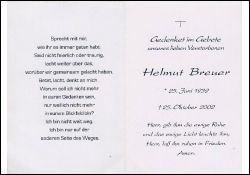 Sprecht mit mir,
wie ihr es immer getan habt.
Seid nicht feierlich oder traurig,
lacht weiter über das,
worüber wir gemeinsam gelacht haben.
Betet, lacht, denkt an mich
Warum soll ich nicht mehr
in euren Gedanken sein,
nur weil ich nicht mehr
in eurem Blickfeld bin?
Ich bin nicht weit weg,
ich bin nur auf der
anderen Seite des Weges.
Gedenket im Gebete
unseres lieben Verstorbenen
Helmut Breuer
* 25. Juni 1939
† 25. Oktober 2002
Herr, gib ihm die ewige Ruhe
und das ewige Licht leuchte ihm.
Herr, laß ihn ruhen in Frieden.
Amen.